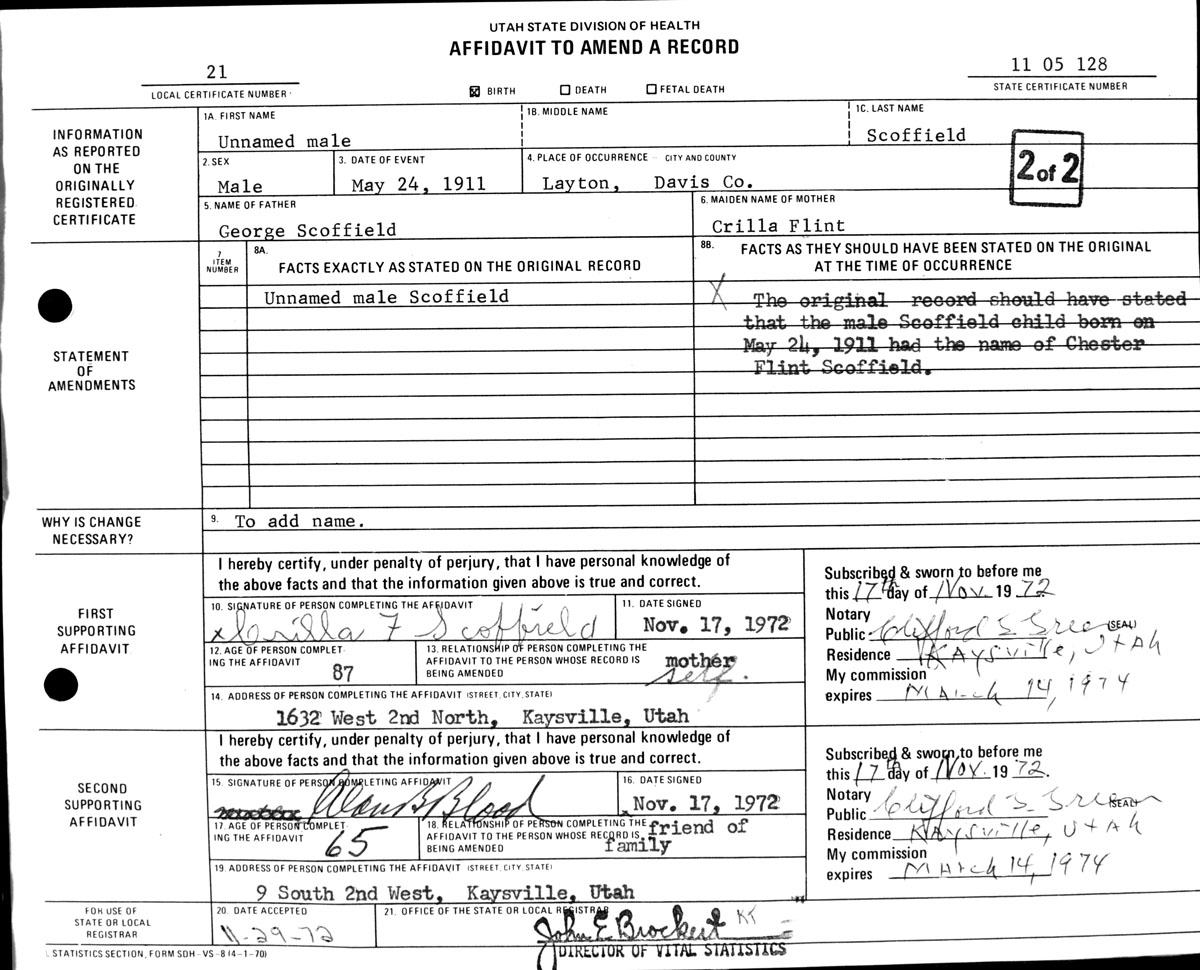 UTAH STATE DIVISION OF HEALTH
AFFIDAVIT TO AMEND A RECORD
21
LOCAL CERTIFICATE NUMBER
☒ BIRTH ☐ DEATH ☐ FETAL DEATH
11 05 128
STATE CERTIFICATE NUMBER
INFORMATION
AS REPORTED
ON THE
ORIGINALLY
REGISTERED
CERTIFICATE
1A. FIRST NAME
Unnamed male
1B. MIDDLE NAME
1C. LAST NAME
Scoffield
2. SEX
Male
3. DATE OF EVENT
May 24, 1911
4. PLACE OF OCCURRENCE - CITY AND COUNTY
Layton, Davis Co.
2 of 2
5. NAME OF FATHER
George Scoffield
6. MAIDEN NAME OF MOTHER
Crilla Flint
STATEMENT
OF
AMENDMENTS
7
ITEM
NUMBER
8A.
FACTS EXACTLY AS STATED ON THE ORIGINAL RECORD
8B. FACTS AS THEY SHOULD HAVE BEEN STATED ON THE ORIGINAL
AT THE TIME OF OCCURRENCE
Unnamed male Scoffield
X The original record should have stated
that the male Scoffield child born on
May 24, 1911 had the name of Chester
Flint Scoffield.
WHY IS CHANGE
NECESSARY?
9. To add name.
FIRST
SUPPORTING
AFFIDAVIT
I hereby certify, under penalty of perjury, that I have personal knowledge of
the above facts and that the information given above is true and correct.
10. SIGNATURE OF PERSON COMPLETING THE AFFIDAVIT
x Crilla F Scoffield
11. DATE SIGNED
Nov. 17, 1972
12. AGE OF PERSON COMPLET-
ING THE AFFIDAVIT
87
13. RELATIONSHIP OF PERSON COMPLETING THE
AFFIDAVIT TO THE PERSON WHOSE RECORD IS
BEING AMENDED
mother
self.
14. ADDRESS OF PERSON COMPLETING THE AFFIDAVIT (STREET, CITY, STATE)
1632 West 2nd North, Kaysville, Utah
Subscribed & sworn to before me
this 17th day of Nov. 19 72
Notary
Public Clifford S. (SEAL)
Residence Kaysville, Utah
My commission
expires March 14, 1974
SECOND
SUPPORTING
AFFIDAVIT
I hereby certify, under penalty of perjury, that I have personal knowledge of
the above facts and that the information given above is true and correct.
15. SIGNATURE OF PERSON COMPLETING AFFIDAVIT
Alan B Blood
16. DATE SIGNED
Nov. 17, 1972
17. AGE OF PERSON COMPLET-
ING THE AFFIDAVIT
65
18. RELATIONSHIP OF PERSON COMPLETING THE
AFFIDAVIT TO THE PERSON WHOSE RECORD IS
BEING AMENDED
friend of
family
19. ADDRESS OF PERSON COMPLETING THE AFFIDAVIT (STREET, CITY, STATE)
9 South 2nd West, Kaysville, Utah
Subscribed & sworn to before me
this 17th day of Nov. 19 72.
Notary
Public Clifford S. (SEAL)
Residence Kaysville, Utah
My commission
expires March 14, 1974
FOR USE OF
STATE OR LOCAL
REGISTRAR
20. DATE ACCEPTED
11-29-72
21. OFFICE OF THE STATE OR LOCAL REGISTRAR
John E Brockert
DIRECTOR OF VITAL STATISTICS
STATISTICS SECTION, FORM SDH-VS-8 (4-1-70)